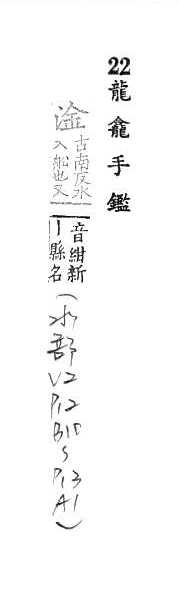 22龍龕手鑑
淦
古南反水
入船也又
音紺新
丨縣名
(水部 V2 P12 B10 ~ P13 A1)